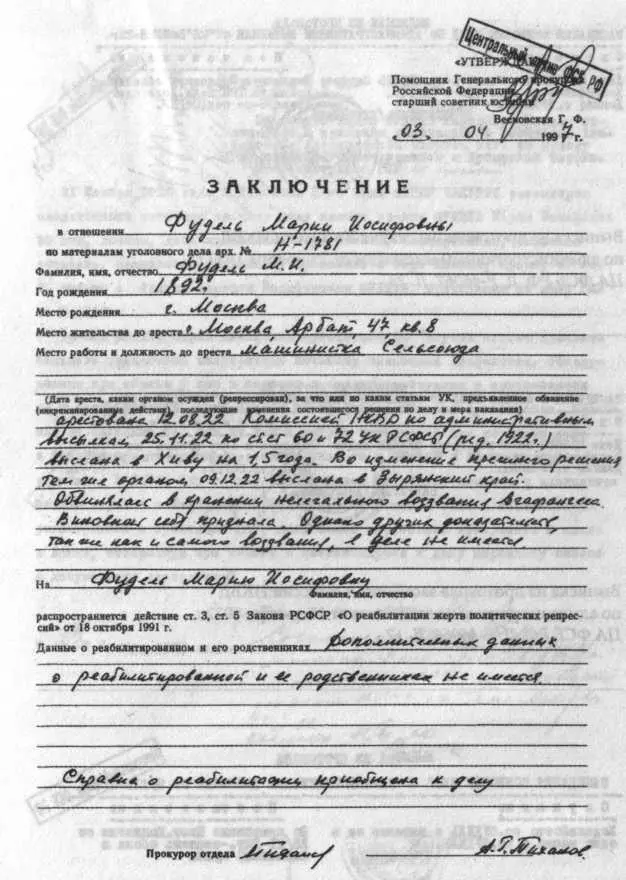 Центральный архив ФСБ РФ
«УТВЕРЖДАЮ»
Помощник Генерального прокурора
Российской Федерации
старший советник юстиции
Весновская Г. Ф.
«03» 04 1997 г.
ЗАКЛЮЧЕНИЕ
в отношении Фудель Марии Иосифовны
по материалам уголовного дела арх. № Н-1781
Фамилия, имя, отчество Фудель М.И.
Год рождения 1892г.
Место рождения г. Москва
Место жительства до ареста г. Москва Арбат 47 кв. 8
Место работы и должность до ареста машинистка Сельсоюза
(Дата ареста, каким органом осужден (репрессирован), за что или по каким статьям УК, предъявленное обвинение
(инкриминированные действия), последующие изменения состоявшегося решения по делу и мера наказания)
арестована 12.08.22 Комиссией НКВД по административным
высылкам 25.11.22 по ст.ст 60 и 72 УК РСФСР (ред. 1922г.)
выслана в Хиву на 1,5 года. Во изменение прежнего решения
тем же органом 09.12.22 выслана в Зырянский край.
Обвинялась в хранении нелегального воззвания Агафангела.
Виновной себя признала. Однако других доказательств,
так же как и самого воззвания, в деле не имеется.
На Фудель Марию Иосифовну
Фамилия, имя, отчество
распространяется действие ст. 3, ст. 5 Закона РСФСР «О реабилитации жертв политических репрес-
сий» от 18 октября 1991 г.
Данные о реабилитированном и его родственниках Дополнительных данных
о реабилитированной и ее родственниках не имеется
Справка о реабилитации приобщена к делу
Прокурор отдела